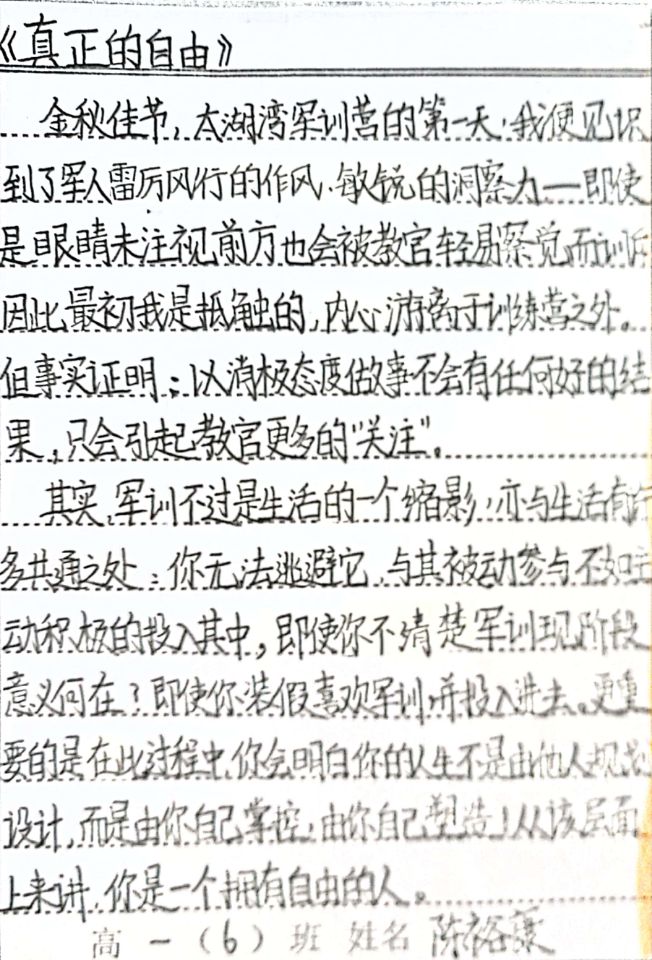 《真正的自由》
金秋佳节，太湖湾军训营的第一天，我便见识
到了军人雷厉风行的作风、敏锐的洞察力——即使
是眼睛未注视前方也会被教官轻易察觉而训斥
因此最初我是抵触的，内心游离于训练营之外。
但事实证明：以消极态度做事不会有任何好的结
果，只会引起教官更多的“关注”。
其实，军训不过是生活的一个缩影，亦与生活有许
多共通之处：你无法逃避它，与其被动参与不如主
动积极的投入其中，即使你不清楚军训现阶段
意义何在？即使你装假喜欢军训，并投入进去。更重
要的是在此过程中，你会明白你的人生不是由他人规范
设计，而是由你自己掌控，由你自己塑造！从该层面
上来讲，你是一个拥有自由的人。
高一（6）班 姓名 陈裕